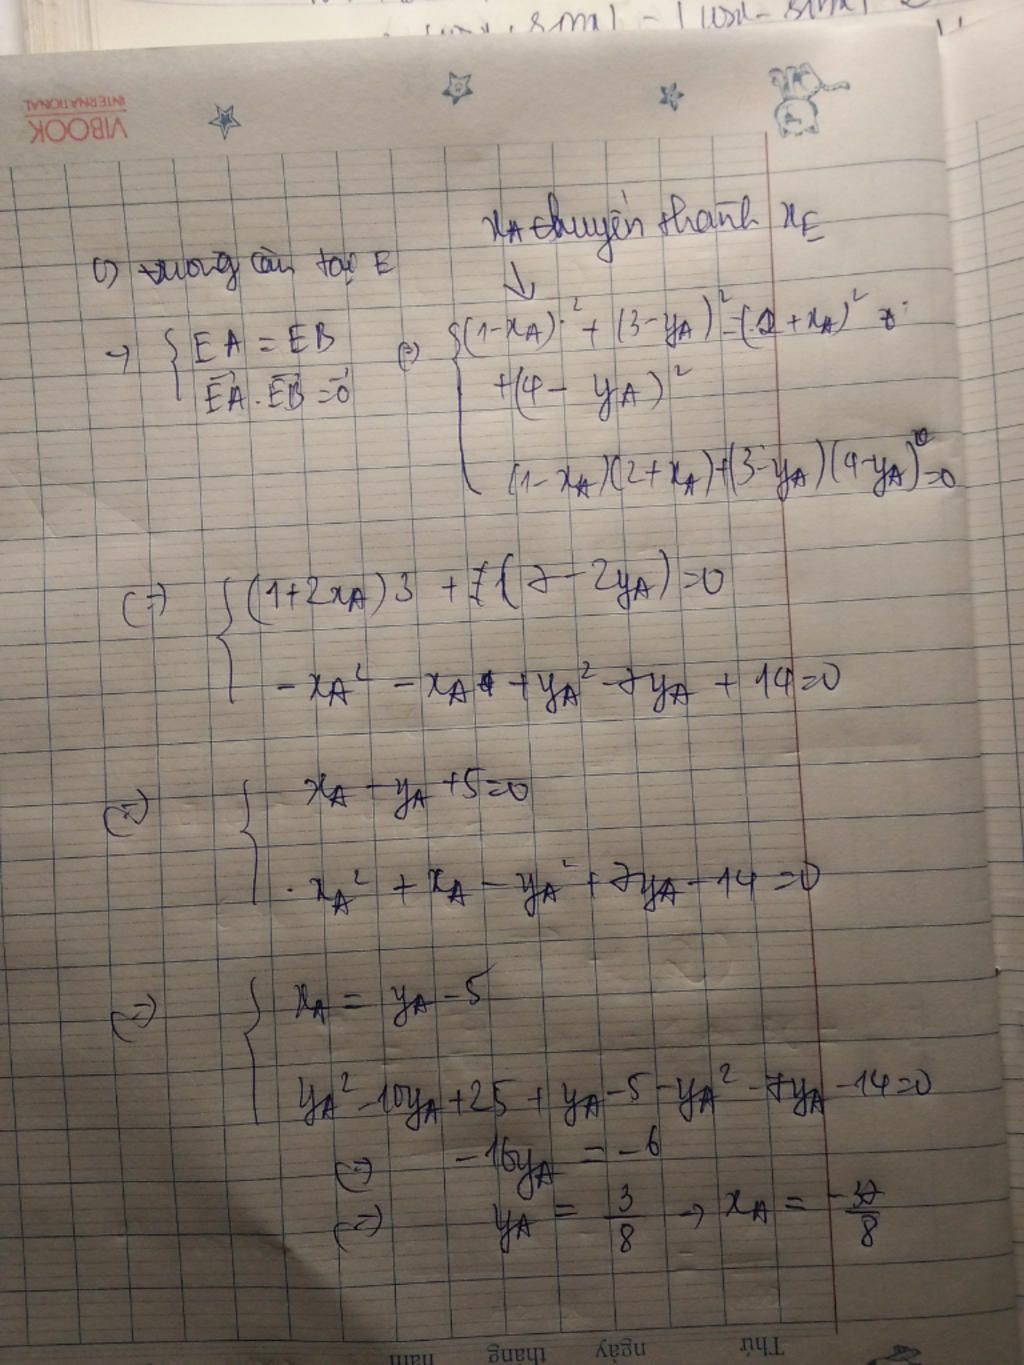 VIBOOK
INTERNATIONAL
x_A chuyển thành x_E
↓
c) vuông cân tại E
→ { EA = EB
EA . EB = 0
(=) { (1-x_A)² + (3-y_A)² = (2+x_A)²
+(4 - y_A)²
(1-x_A)(2+x_A)+(3-y_A)(4-y_A)=0
(=) { (1+2x_A)3 + 7-2y_A)=0
-x_A² - x_A + y_A² - 7y_A + 14=0
(=) { x_A - y_A +5=0
x_A² + x_A - y_A² + 7y_A - 14 =0
(=) { x_A = y_A -5
y_A² -10y_A +25 + y_A -5 -y_A² -7y_A -14=0
(=) -16y_A = -6
(=) y_A = 3/8 → x_A = -37/8
Thứ ngày tháng năm